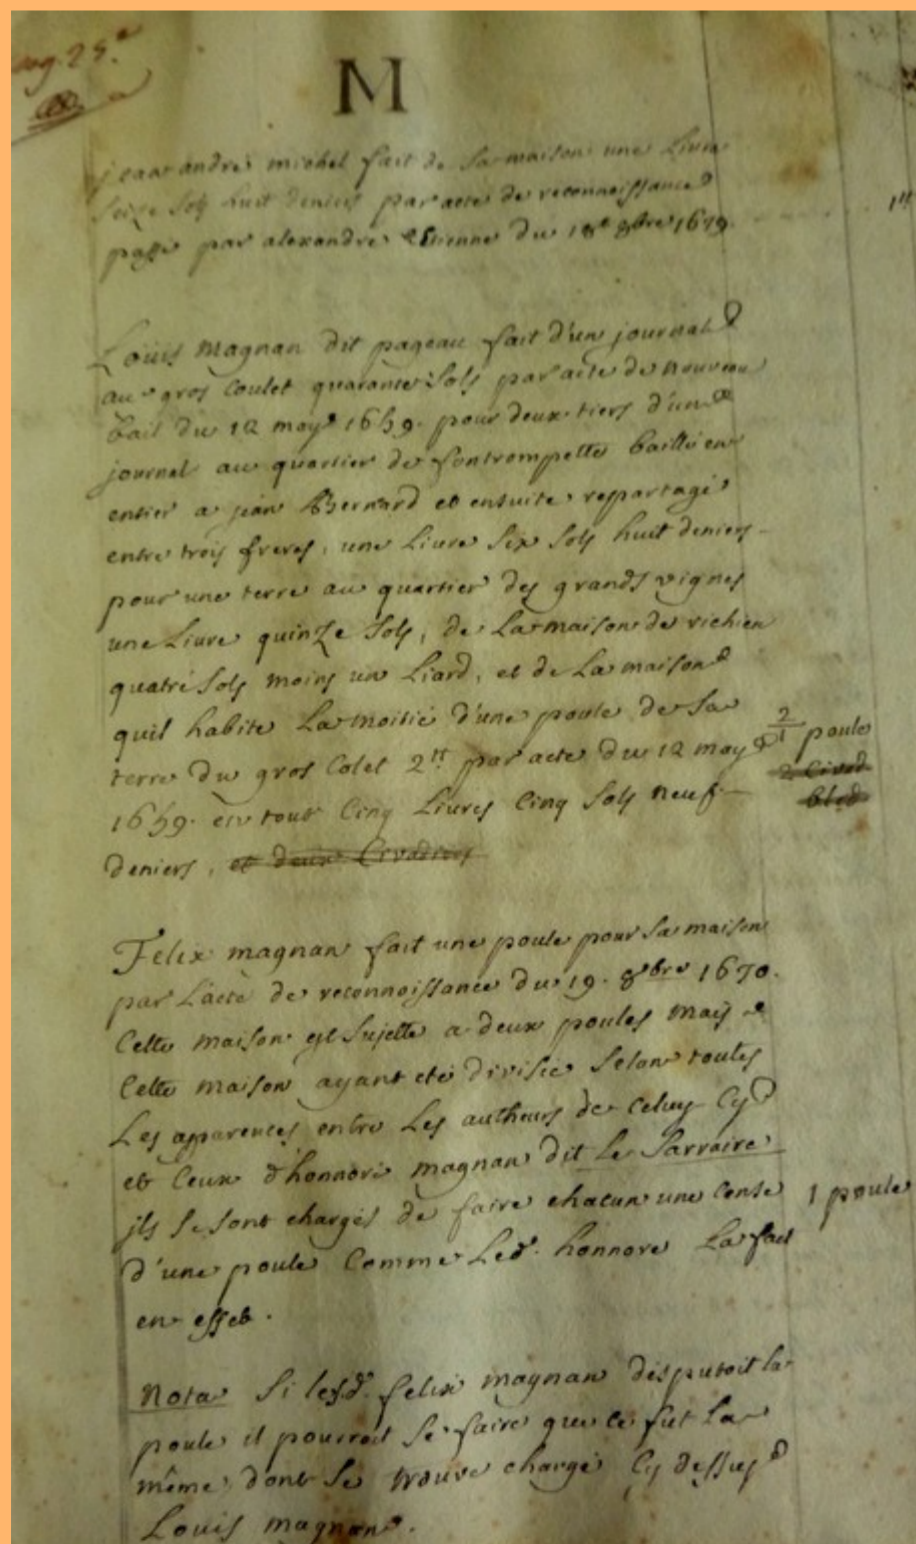 pag. 25.
M
jean andré michel fait de sa maison une Livre
seize sols huit deniers par acte de reconnoissance
passé par alexandre Etienne du 18e 8bre 1679.
Louis Magnan dit pageau fait d'un journal
au gros Coulet quarante sols par acte de nouveau
bail du 12 may 1659. pour deux tiers d'un
journal au quartier de fontrompette baillé en
entier a jean Bernard et ensuite repartagé
entre trois freres, une Livre six sols huit deniers
pour une terre au quartier des grands vignes
une Livre quinze sols, de La maison de richien
quatre sols moins un Liard, et de La maison
quil habite La moitié d'une poule de sa
terre du gros Colet 2tt par acte du 12 may
1659. en tout Cinq Livres Cinq sols neuf
deniers, et deux Civadiers
1/2 poule
2 Civad
bled
Felix magnan fait une poule pour sa maison
par L'acte de reconnoissance du 19. 8bre 1670.
Cette maison est sujette a deux poules mais
Cette maison ayant eté divisée selon toutes
Les apparences entre Les autheurs de Celuy Cy
et Ceux d'honnoré magnan dit Le Sarraire
ils se sont chargés de faire chacun une Cense
d'une poule Comme Led. honnore La fait
en effet.
1 poule
Nota Si lesd. felix magnan disputoit la
poule il pourroit se faire que Ce fut La
même dont se trouve chargé Cy dessus
Louis magnan.